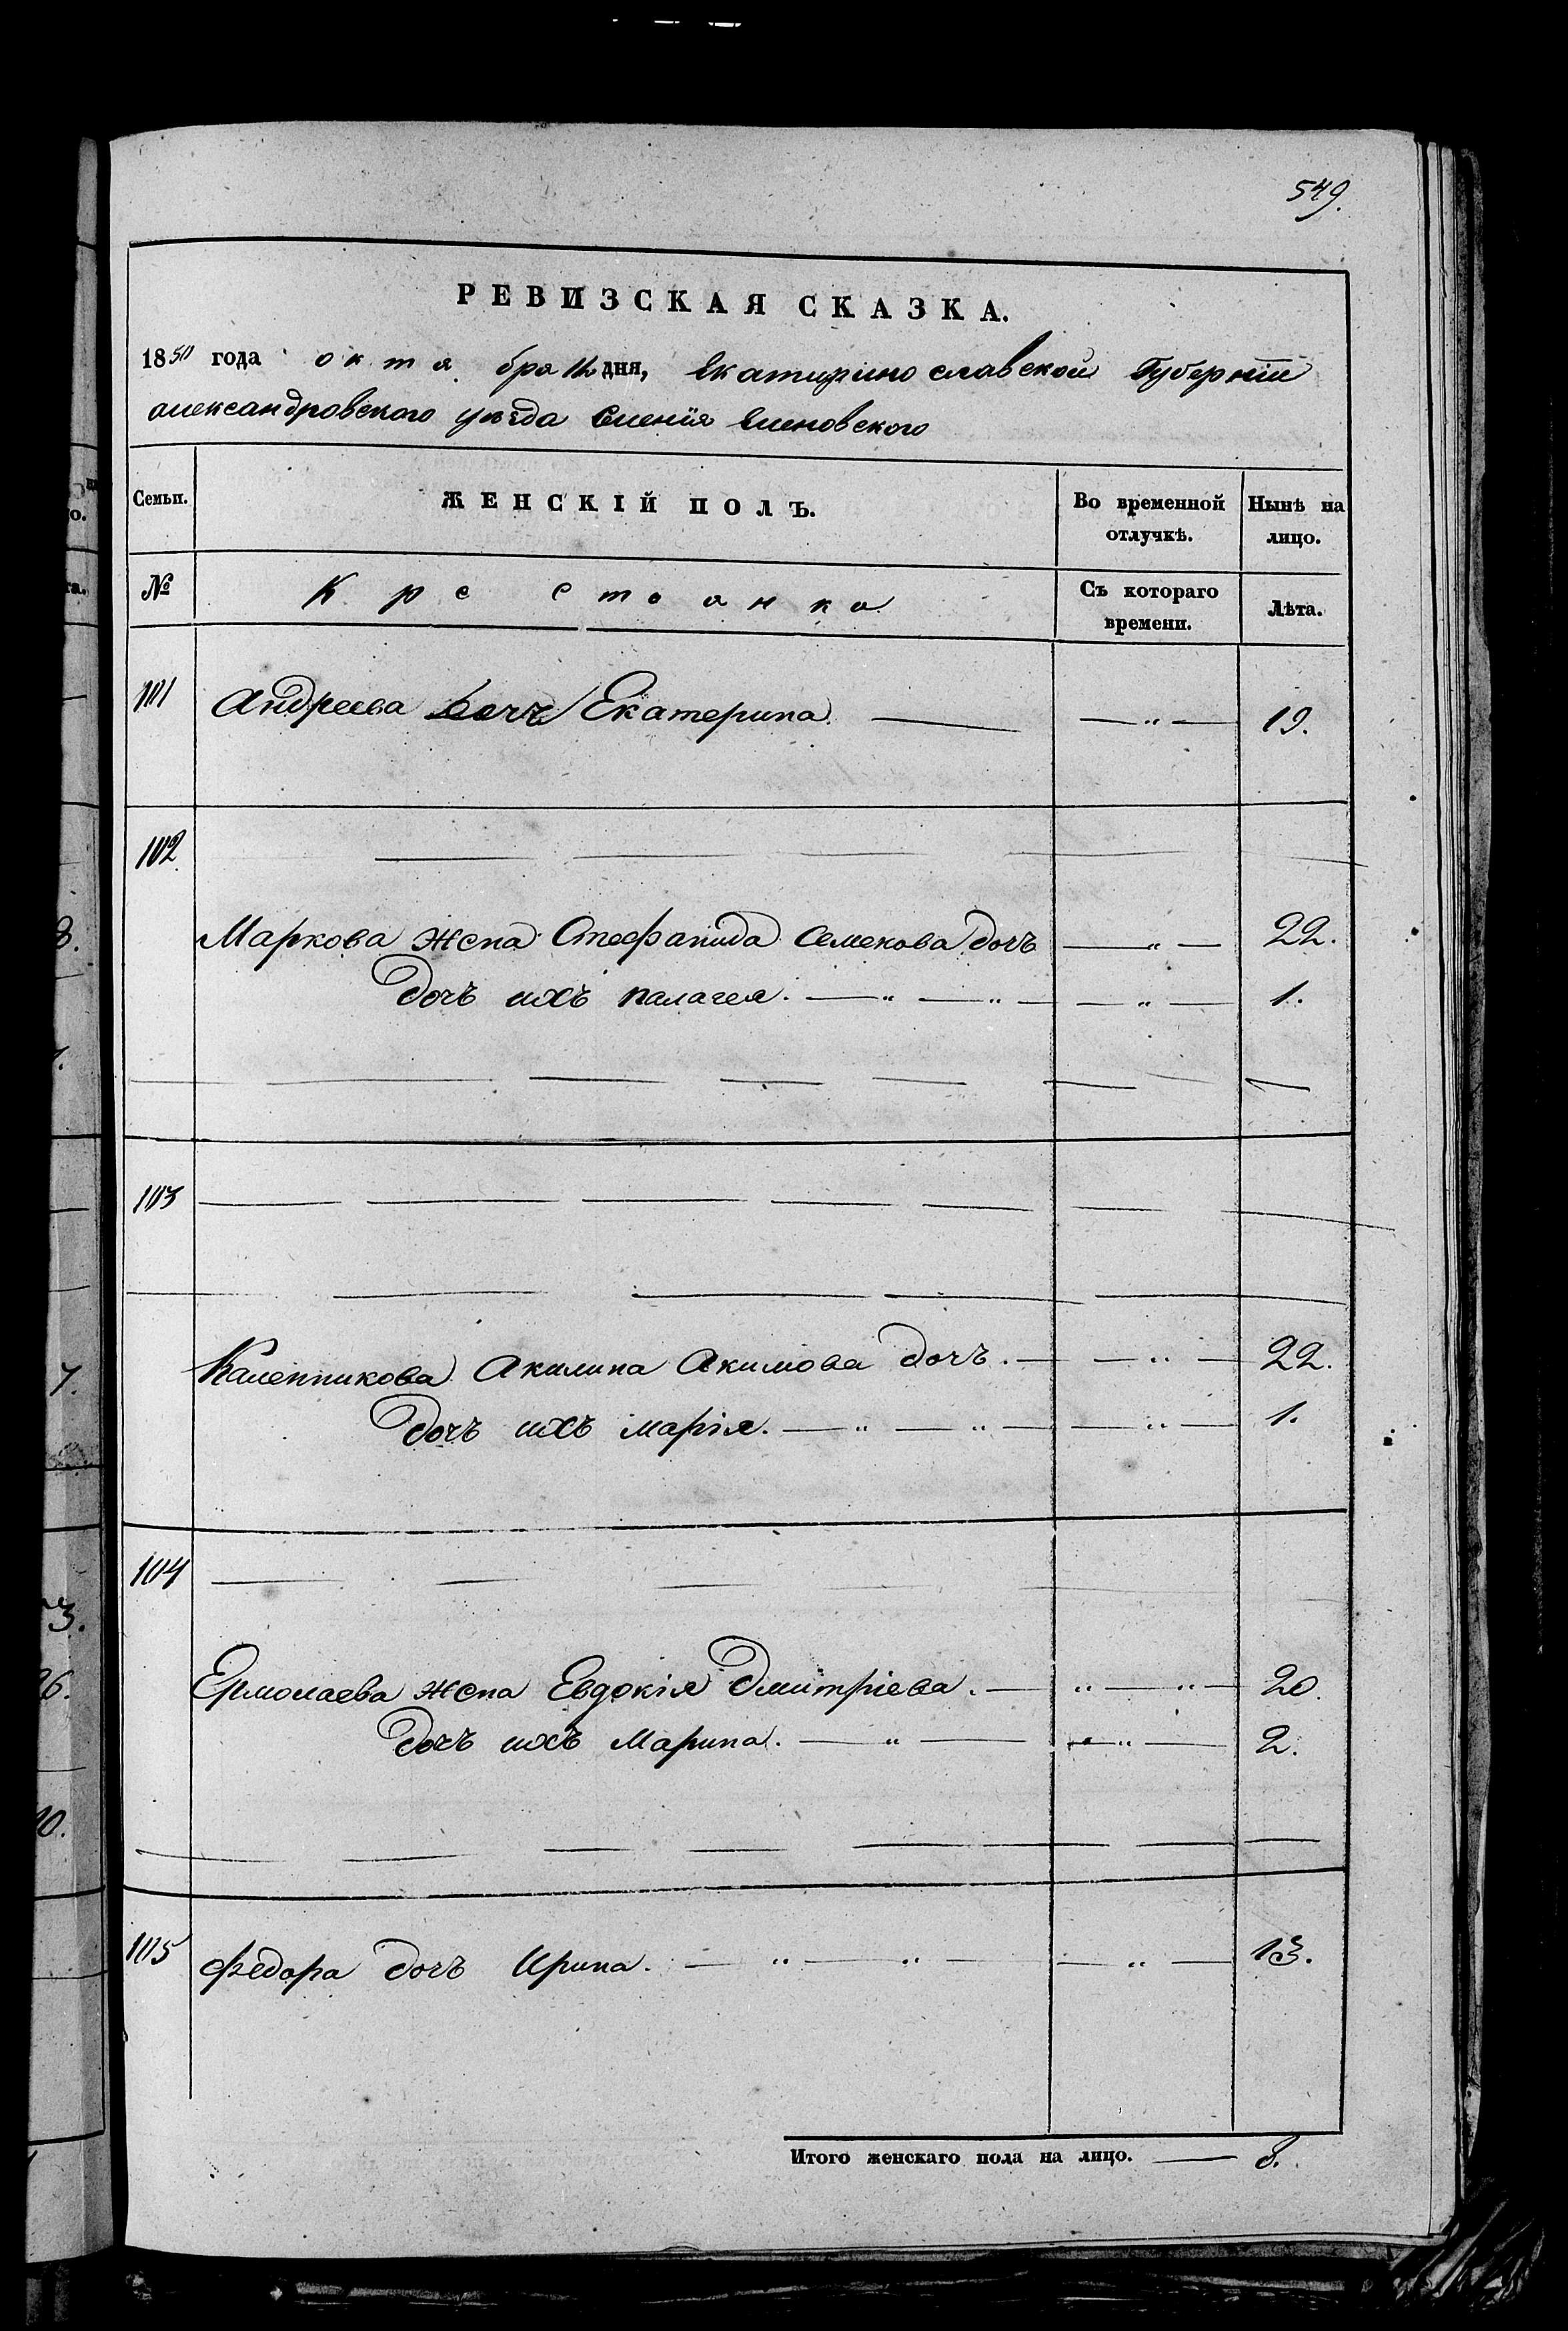 549.
РЕВИЗСКАЯ СКАЗКА.
1850 года октября 12 дня, Екатиринославской Губерніи
александровского уѣзда Еленовского
Семьи. ЖЕНСКІЙ ПОЛЪ. Во временной отлучкѣ. Нынѣ на лицо.
№ Съ котораго времени. Лѣта.
101 Андреева дочъ Екатерина. — — „ — 19.
102
Маркова жена Стефанида Семенова дочъ — „ — 22.
дочъ ихъ палагея. — „ — „ — — „ — 1.
103
Акилина Акимова дочъ. — — „ — 22.
дочъ ихъ марія. — „ — „ — — „ — 1.
104
Ермолаева жена Евдокія Дмитріева. — „ — „ — 20.
дочъ ихъ Марина. — „ — — „ — 2.
105 Федора дочъ Ирина. — „ — „ — — „ — 13.
Итого женскаго пола на лицо. — 8.